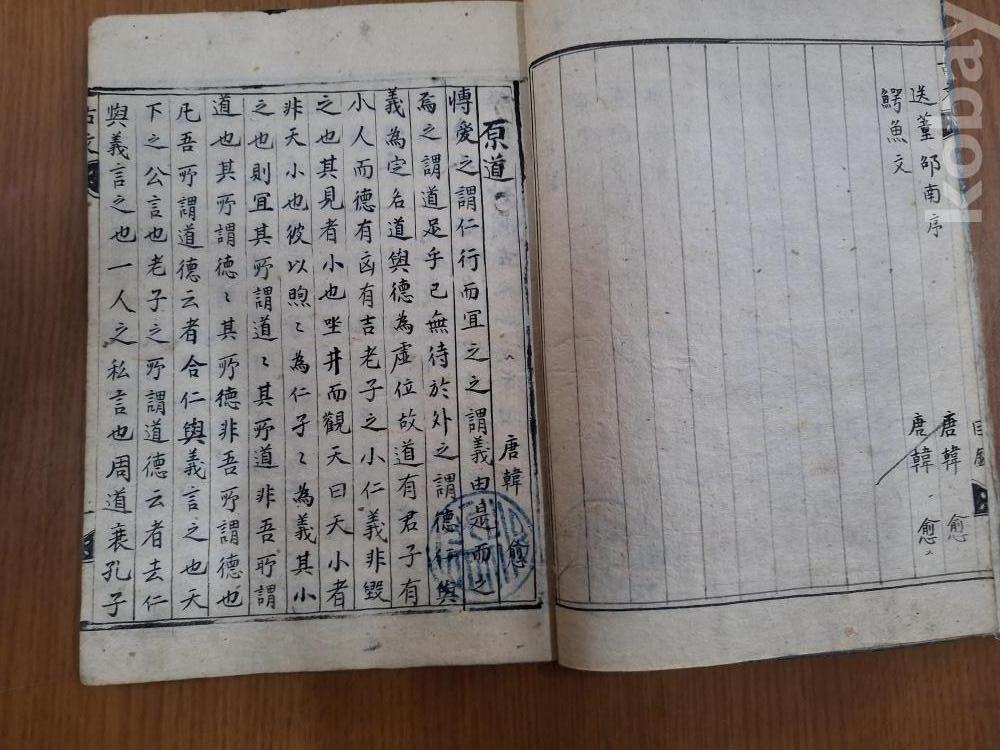 目录
送董邵南序 唐韓愈
鰐魚文 唐韓愈
原道 唐韓愈
愽愛之謂仁行而冝之之謂義由是而之
焉之謂道足乎己無待於外之謂德仁與
義為定名道與德為虛位故道有君子有
小人而德有凶有吉老子之小仁義非毀
之也其見者小也坐井而觀天曰天小者
非天小也彼以煦〻為仁子〻為義其小
之也則冝其所謂道〻其所道非吾所謂
道也其所謂德〻其所德非吾所謂德也
凡吾所謂道德云者合仁與義言之也天
下之公言也老子之所謂道德云者去仁
與義言之也一人之私言也周道衰孔子
古文
kobay